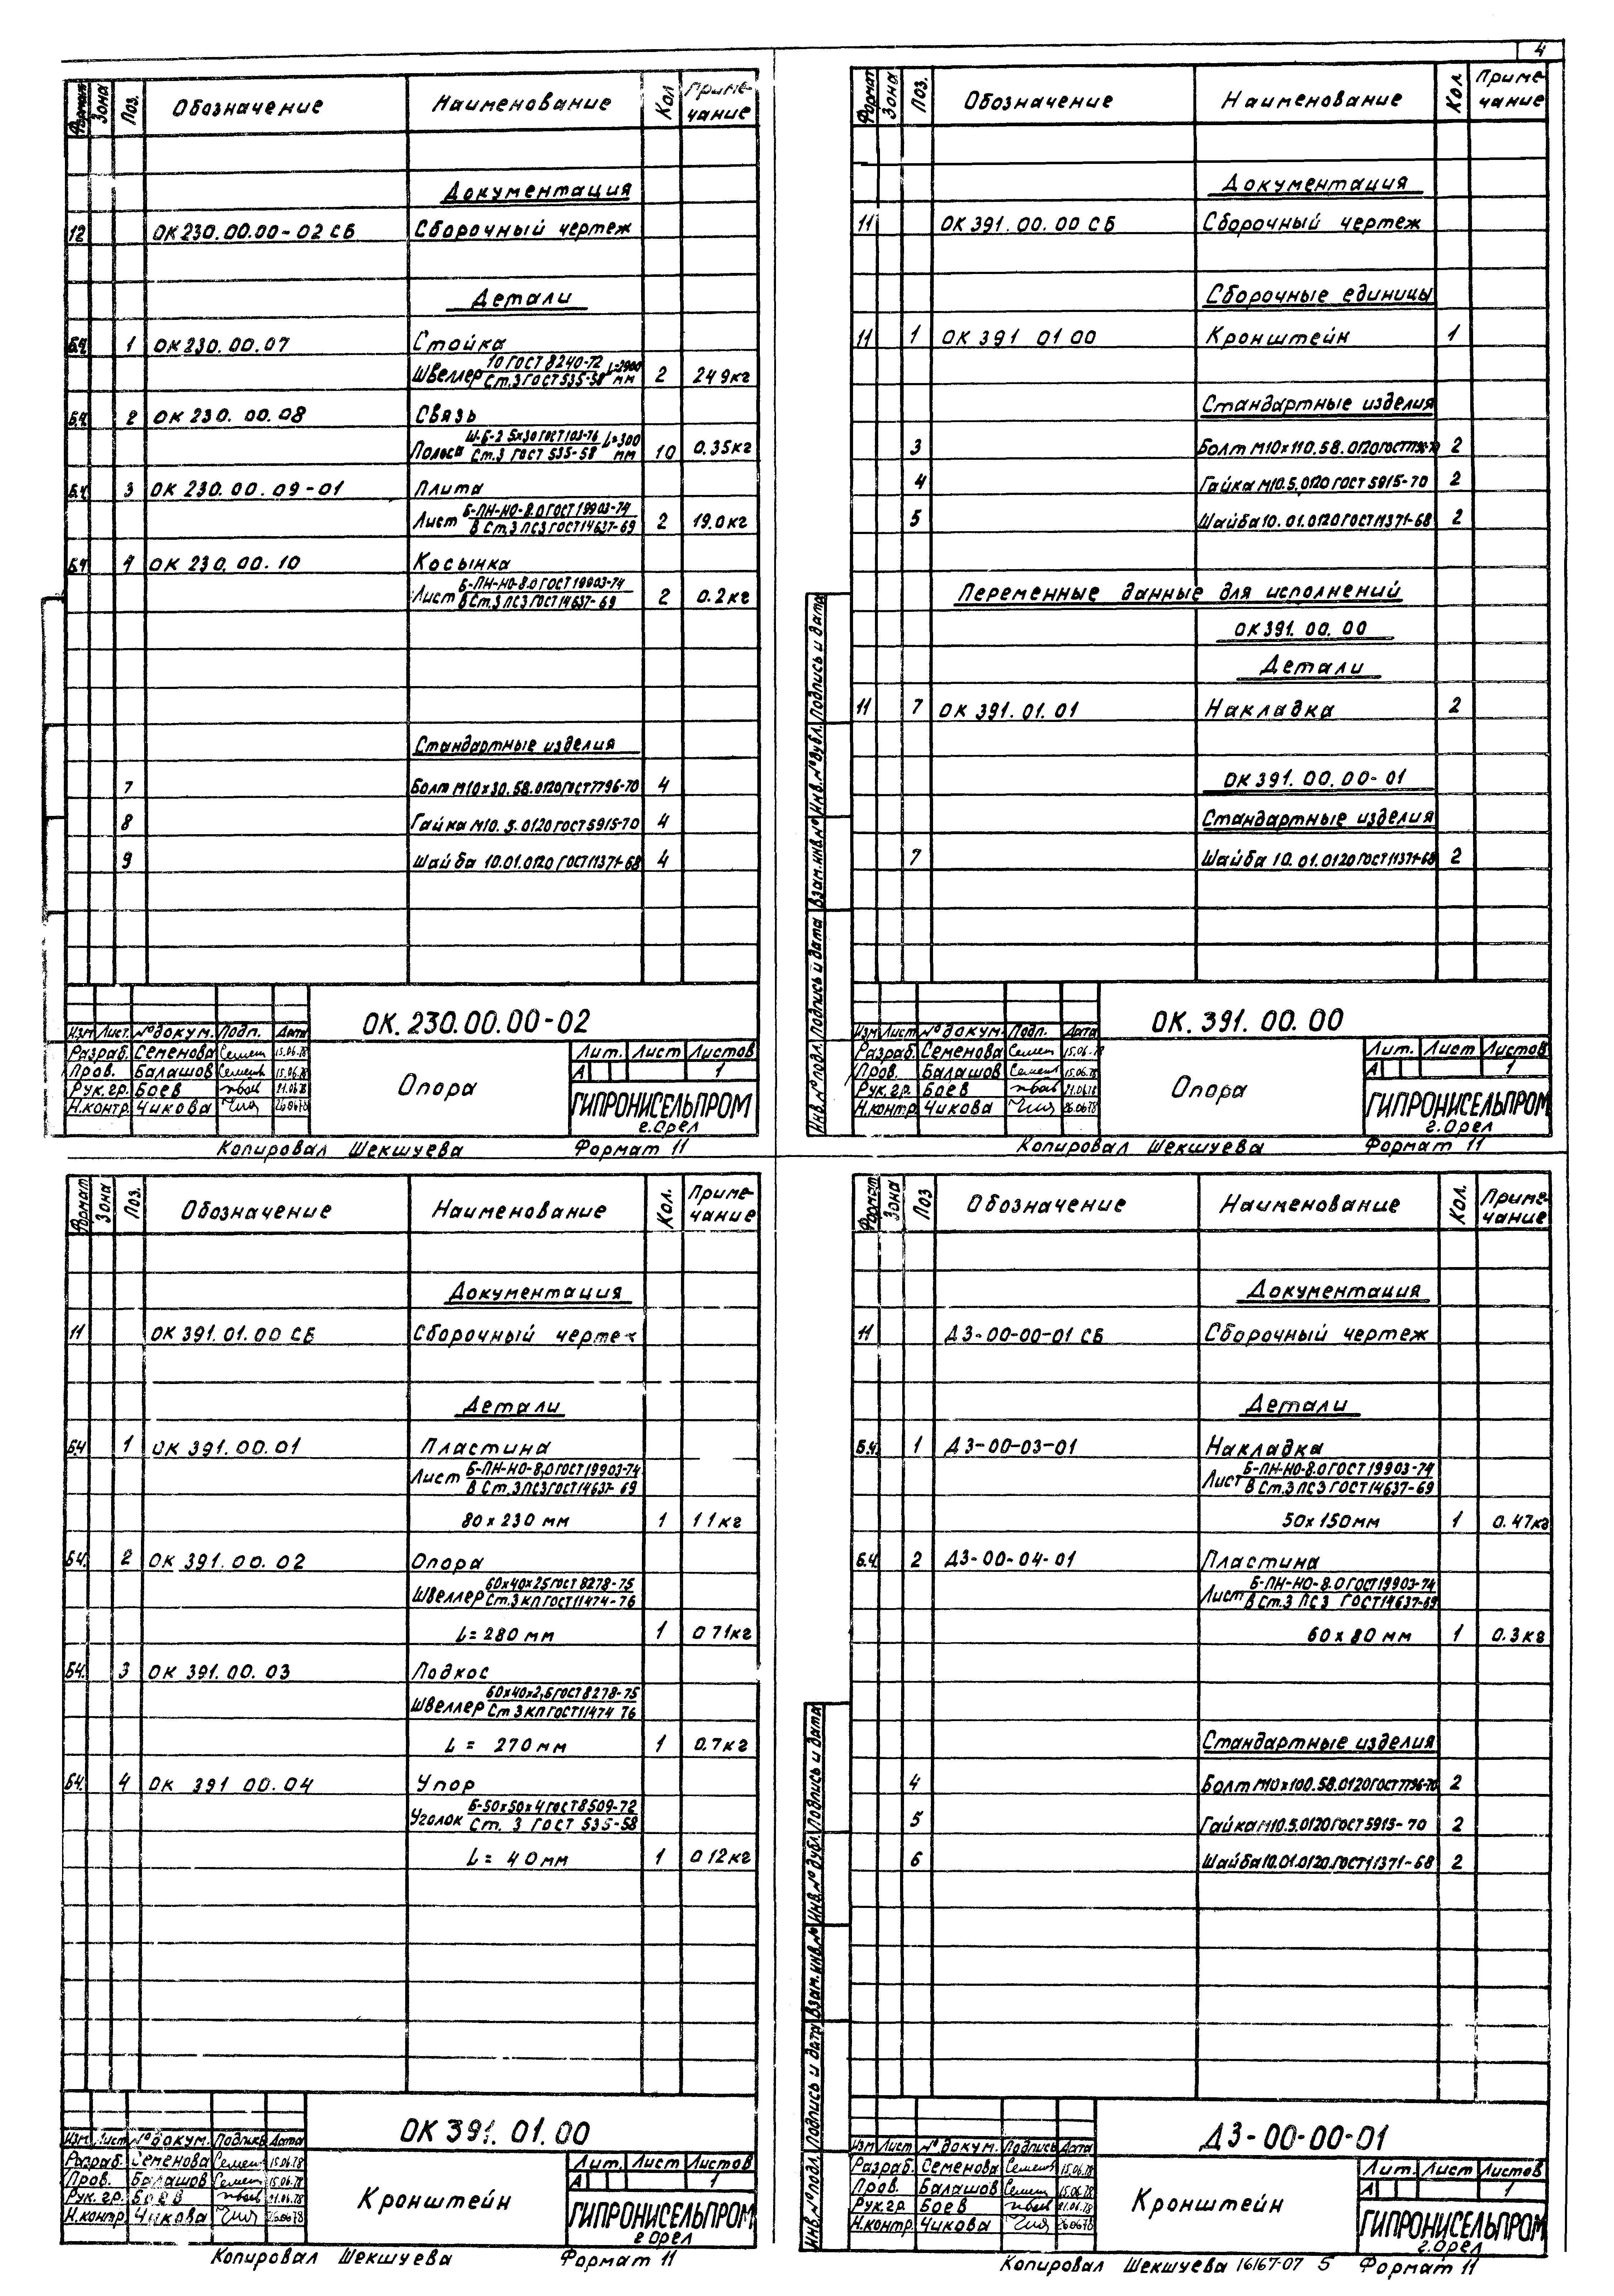 4
Формат Зона Поз. Обозначение Наименование Кол Приме-
чание
Документация
12 ОК230.00.00-02 СБ Сборочный чертеж
Детали
Б.Ч. 1 ОК230.00.07 Стойка
Швеллер 10 ГОСТ 8240-72 L=2900
Ст.3 ГОСТ 535-58 мм 2 24 9кг
Б.Ч. 2 ОК 230. 00.08 Связь
Полоса Ш-Б-2 5х30 ГОСТ 103-76 L=300
Ст.3 ГОСТ 535-58 мм 10 0.35кг
Б.Ч. 3 ОК 230.00.09-01 Плита
Лист Б-ПН-НО-8.0 ГОСТ 19903-74
В Ст.3 ПС3 ГОСТ 14637-69 2 19.0кг
Б.Ч. 4 ОК 230. 00.10 Косынка
Лист Б-ПН-НО-8.0 ГОСТ 19903-74
В Ст.3 ПС3 ГОСТ 14637-69 2 0.2кг
Стандартные изделия
7 Болт М10х30.58.0120 ГОСТ 7796-70 4
8 Гайка М10.5.0120 ГОСТ 5915-70 4
9 Шайба 10.01.0120 ГОСТ 11371-68 4
ОК.230.00.00-02
Изм Лист. № докум. Подп. Дата
Разраб. Семенова Семен 15.06.78
Пров. Балашов Семен 15.06.78
Рук.гр. Боев 21.06.78
Н.контр. Чикова 26.06.78
Опора
Лит. Лист Листов
А 1
ГИПРОНИСЕЛЬПРОМ
г.Орел
Копировал Шекшуева Формат 11
Формат Зона Поз. Обозначение Наименование Кол. Приме-
чание
Документация
11 ОК 391.00.00 СБ Сборочный чертеж
Сборочные единицы
11 1 ОК 391 01 00 Кронштейн 1
Стандартные изделия
3 Болт М10х110.58.0120 ГОСТ 7796-70 2
4 Гайка М10.5.0120 ГОСТ 5915-70 2
5 Шайба 10.01.0120 ГОСТ 11371-68 2
Переменные данные для исполнений
ОК391.00.00
Детали
11 7 ОК 391.01.01 Накладка 2
ОК 391.00.00-01
Стандартные изделия
7 Шайба 10.01.0120 ГОСТ 11371-68 2
Инв.№подл. Подпись и дата Взам.инв.№ Инв.№дубл. Подпись и дата
ОК.391.00.00
Изм Лист № докум. Подп. Дата
Разраб. Семенова Семен 15.06.78
Пров. Балашов Семен 15.06.78
Рук.гр. Боев 21.06.78
Н.контр. Чикова 26.06.78
Опора
Лит. Лист Листов
А 1
ГИПРОНИСЕЛЬПРОМ
г.Орел
Копировал Шекшуева Формат 11
Формат Зона Поз. Обозначение Наименование Кол. Приме-
чание
Документация
11 ОК 391.01.00 СБ Сборочный чертеж
Детали
Б.Ч 1 ОК 391.00.01 Пластина
Лист Б-ПН-НО-8,0 ГОСТ 19903-74
В Ст.3 ПС3 ГОСТ 14637-69
80х230 мм 1 1 1кг
Б.Ч. 2 ОК 391.00.02 Опора
Швеллер 60х40х25 ГОСТ 8278-75
Ст.3 кп ГОСТ 11474-76
L=280 мм 1 0 71кг
Б.Ч. 3 ОК 391.00.03 Подкос
Швеллер 60х40х2,5 ГОСТ 8278-75
Ст 3 кп ГОСТ 11474 76
L = 270 мм 1 0.7кг
Б.Ч. 4 ОК 391 00.04 Упор
Уголок Б-50х50х4 ГОСТ 8509-72
Ст. 3 ГОСТ 535-58
L= 40мм 1 0 12кг
ОК 391.01.00
Изм Лист № докум. Подпись Дата
Разраб. Семенова Семен 15.06.78
Пров. Балашов Семен 15.06.78
Рук.гр. Боев 21.06.78
Н.контр Чикова 26.06.78
Кронштейн
Лит. Лист Листов
А 1
ГИПРОНИСЕЛЬПРОМ
г Орел
Копировал Шекшуева Формат 11
Формат Зона Поз Обозначение Наименование Кол. Приме-
чание
Документация
11 Д3-00-00-01 СБ Сборочный чертеж
Детали
Б.Ч. 1 Д3-00-03-01 Накладка
Лист Б-ПН-НО-8.0 ГОСТ 19903-74
В Ст.3 ПС3 ГОСТ 14637-69
50х150мм 1 0.47кг
Б.Ч. 2 Д3-00-04-01 Пластина
Лист Б-ПН-НО-8.0 ГОСТ 19903-74
В Ст.3 ПС3 ГОСТ 14637-69
60х80 мм 1 0.3кг
Стандартные изделия
4 Болт М10х100.58.0120 ГОСТ 7796-70 2
5 Гайка М10.5.0120 ГОСТ 5915-70 2
6 Шайба 10.01.0120.ГОСТ 11371-68 2
Инв.№подл. Подпись и дата Взам.инв.№ Инв.№дубл. Подпись и дата
Д3-00-00-01
Изм Лист № докум. Подпись Дата
Разраб. Семенова Семен 15.06.78
Пров. Балашов Семен 15.06.78
Рук.гр. Боев 21.06.78
Н.контр. Чикова 26.06.78
Кронштейн
Лит. Лист Листов
А 1
ГИПРОНИСЕЛЬПРОМ
г.Орел
Копировал Шекшуева 16167-07 5 Формат 11